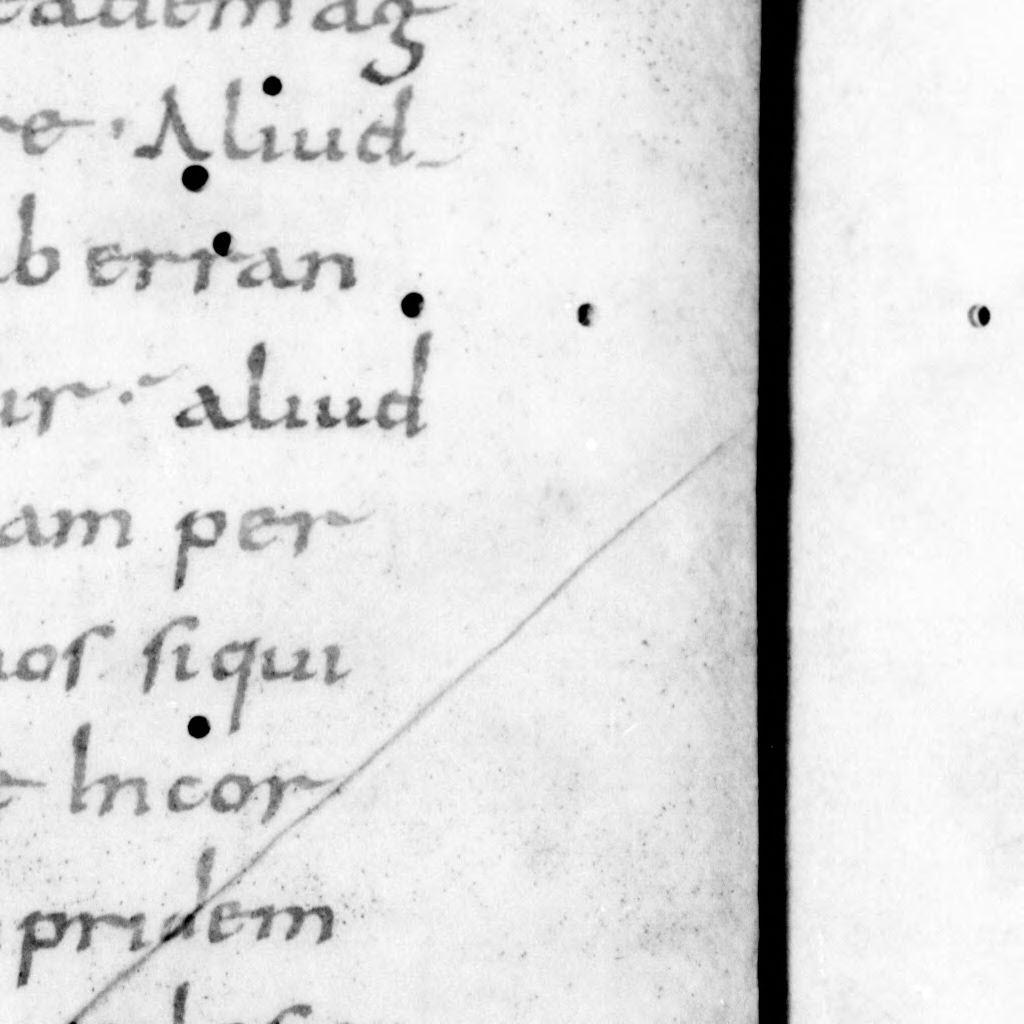 eademag
re · Aliud
ab erran
ur · aliud
am per
nos siqui
& Incor
pridem